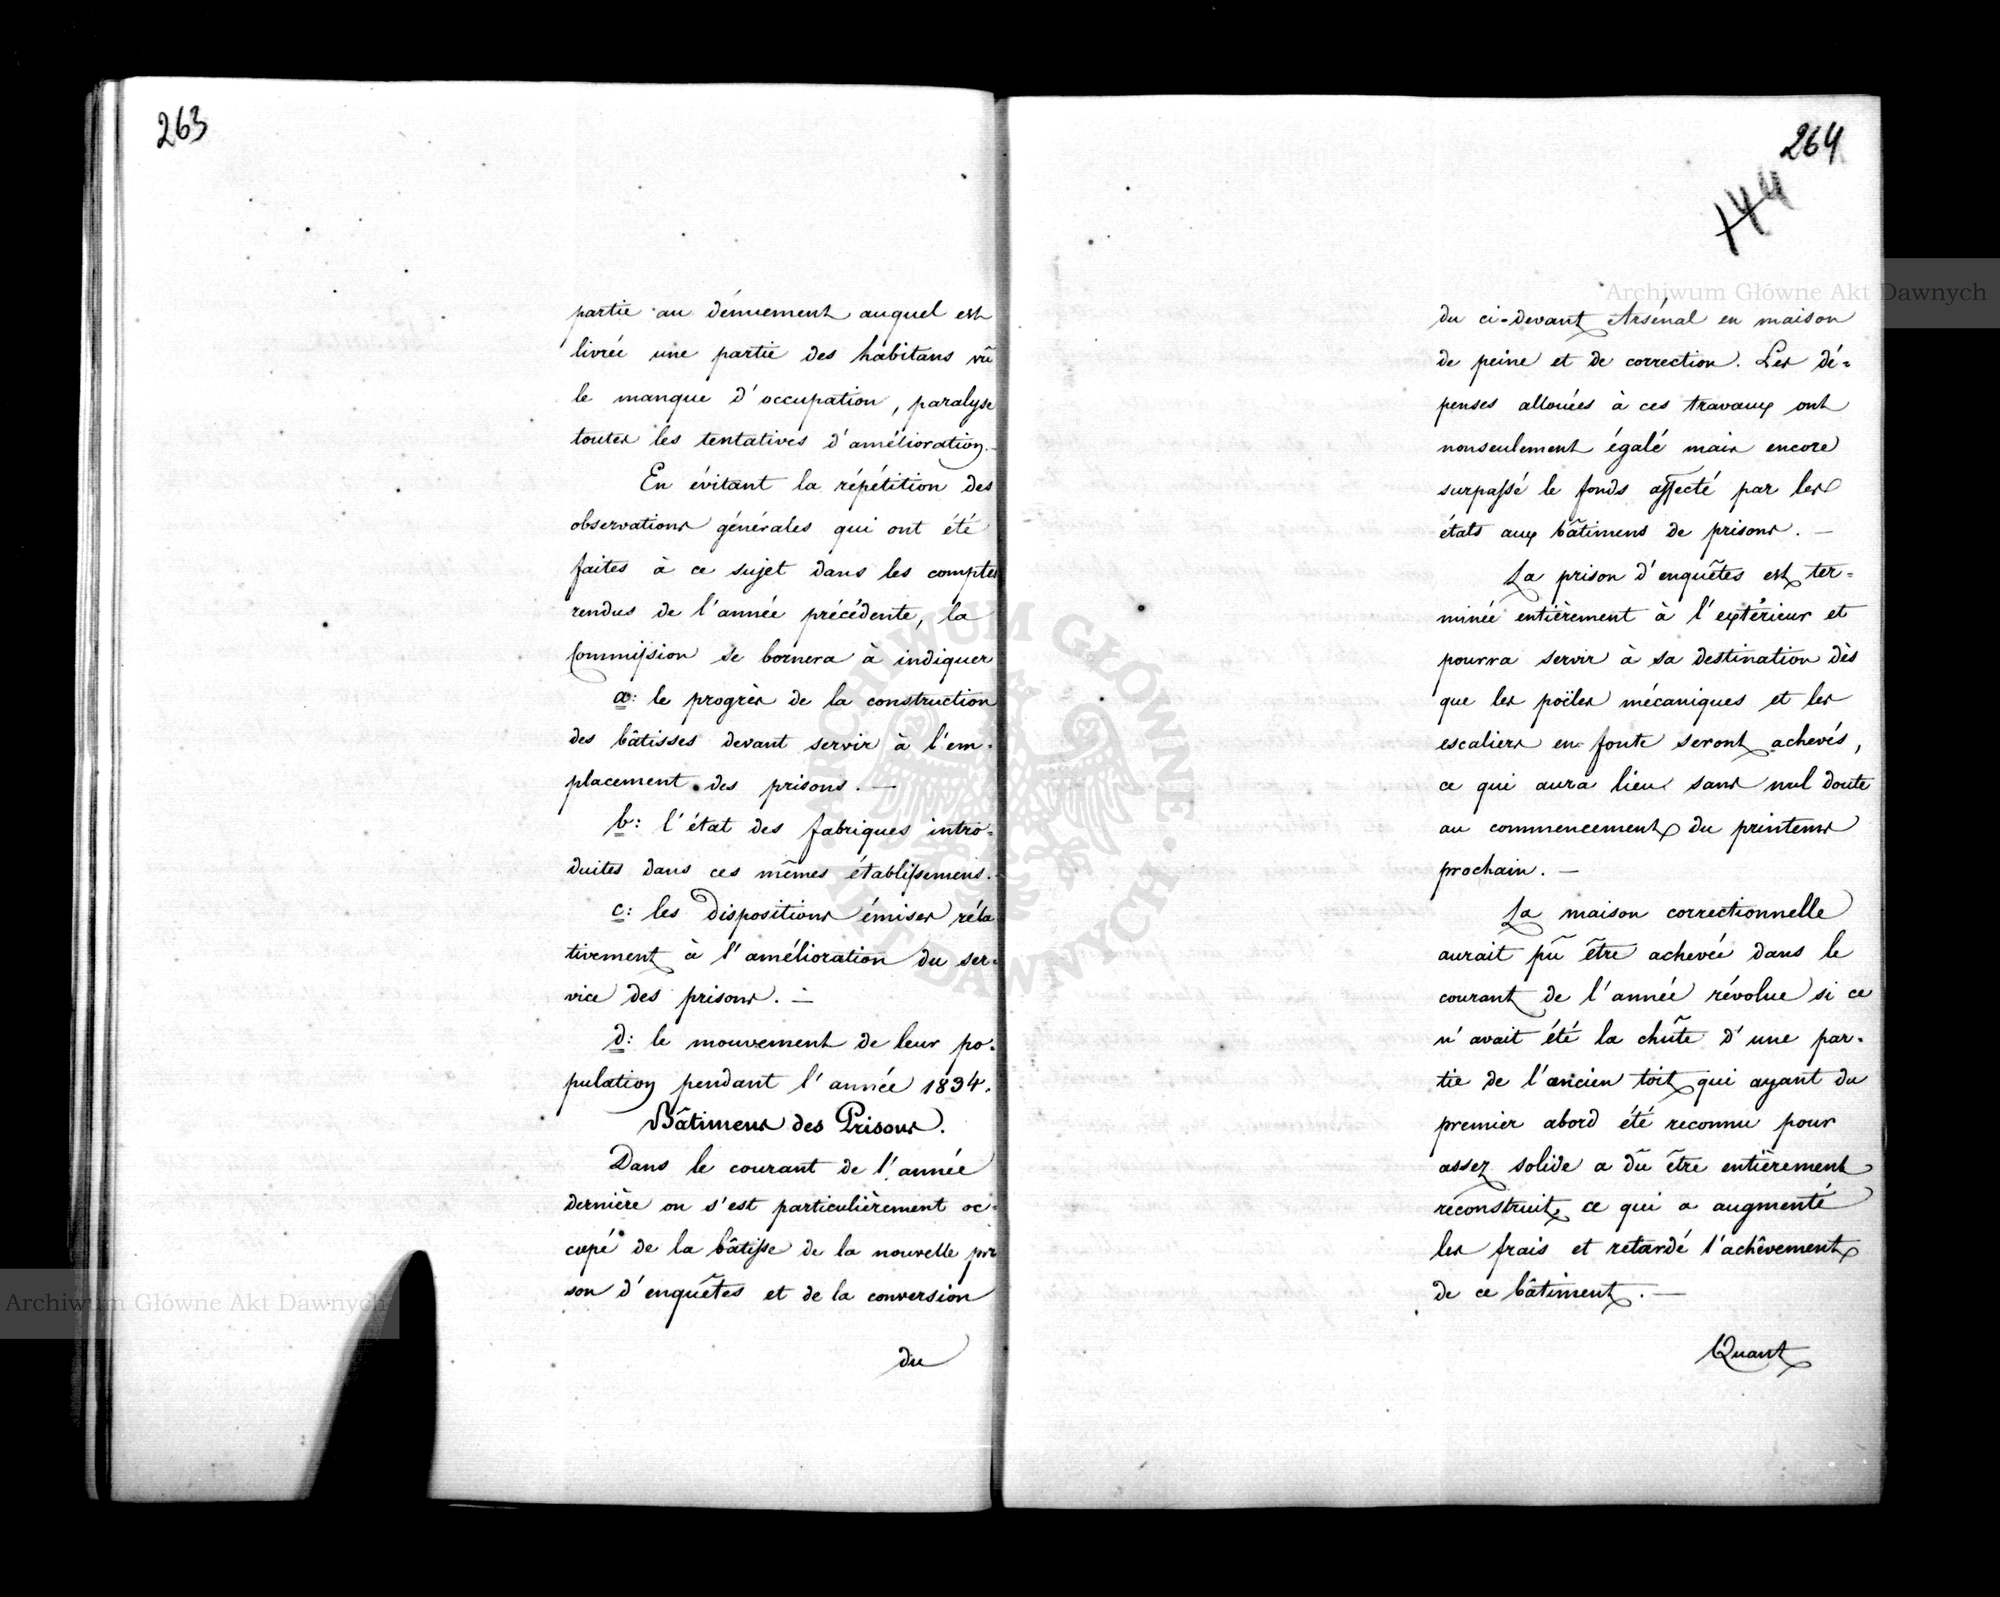 263
partie au dénuement auquel est
livrée une partie des habitans vû
le manque d'occupation, paralyse
toutes les tentatives d'amélioration.
En évitant la répétition des
observations générales qui ont été
faites à ce sujet dans les comptes
rendus de l'année précédente, la
Commission se bornera à indiquer
a: le progrès de la construction
des bâtisses devant servir à l'em-
placement des prisons. —
b: l'état des fabriques intro-
duites dans ces mêmes établissemens.
c: les dispositions émises réla-
tivement à l'amélioration du ser-
vice des prisons. —
d: le mouvement de leur po-
pulation pendant l'année 1834.
Bâtimens des Prisons.
Dans le courant de l'année
dernière on s'est particulièrement oc-
cupé de la bâtisse de la nouvelle pri
son d'enquêtes et de la conversion
du
264
144
du ci-devant Arsénal en maison
de peine et de correction. Les dé-
penses allouées à ces travaux ont
nonseulement égalé mais encore
surpassé le fonds affecté par les
états aux bâtimens de prisons. —
La prison d'enquêtes est ter-
minée entièrement à l'extérieur et
pourra servir à sa destination dès
que les poëles mécaniques et les
escaliers en fonte seront achevés,
ce qui aura lieu sans nul doute
au commencement du printems
prochain. —
La maison correctionnelle
aurait pû être achevée dans le
courant de l'année révolue si ce
n'avait été la chûte d'une par-
tie de l'ancien toit qui ayant du
premier abord été reconnu pour
assez solide a dû être entièrement
réconstruit, ce qui a augmenté
les frais et retardé l'achêvement
de ce bâtiment. —
Quant
Archiwum Główne Akt Dawnych
Archiwum Główne Akt Dawnych
ARCHIWUM GŁÓWNE AKT DAWNYCH